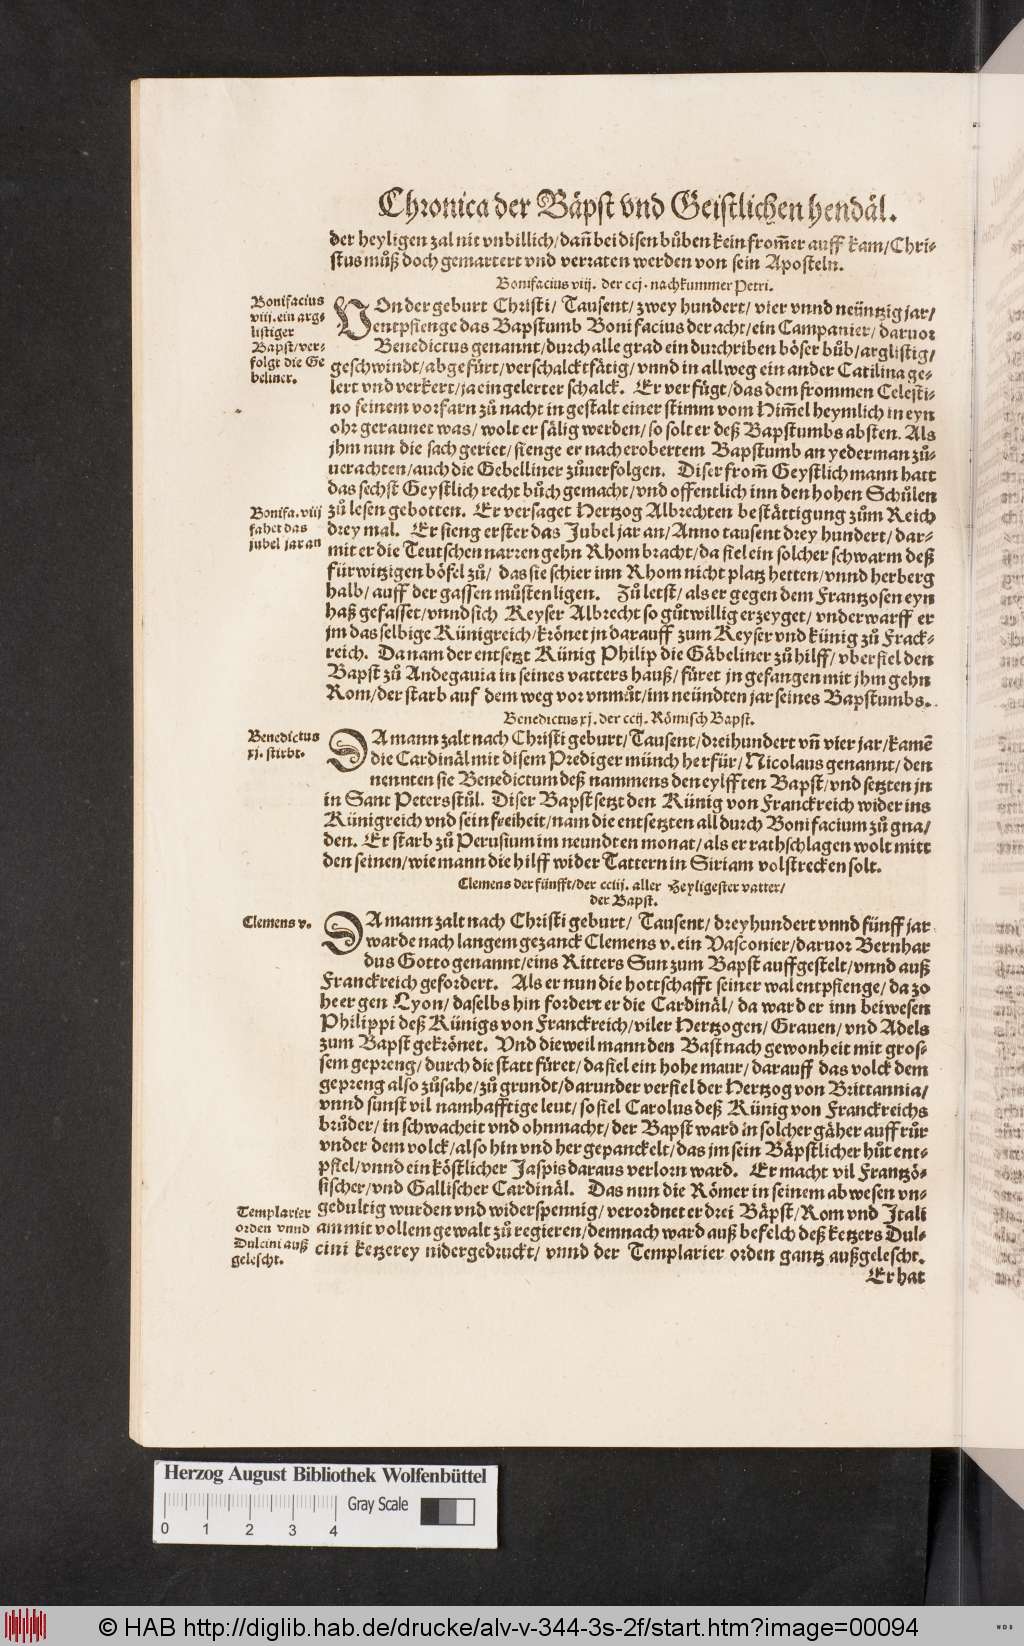 Chronica der Bäpst vnd Geistlichen hendäl.
der heyligen zal nit vnbillich/ dañ bei disen bůben kein from̃er auff kam/ Chri-
stus můß doch gemartert vnd verraten werden von sein Aposteln.
Bonifacius viij. der ccj. nachkummer Petri.
Bonifacius
viij. ein arg-
listiger
Bapst/ ver-
folgt die Ge
beliner.
VOn der geburt Christi/ Tausent/ zwey hundert/ vier vnnd neüntzig jar/
entpfienge das Bapstumb Bonifacius der acht/ ein Campanier/ daruor
Benedictus genannt/ durch alle grad ein durchriben böser bůb/ arglistig/
geschwindt/ abgefürt/ verschalckt tätig/ vnnd in allweg ein ander Catilina ge-
lert vnd verkert/ ja ein gelerter schalck. Er verfügt/ das dem frommen Celesti-
no seinem vorfarn zů nacht in gestalt einer stimm vom Him̃el heymlich in eyn
ohr geraunet was/ wolt er sälig werden/ so solt er deß Bapstumbs absten. Als
jhm nun die sach geriet/ fienge er nach erobertem Bapstumb an yederman zů-
uerachten/ auch die Gebelliner zůuerfolgen. Diser from̃ Geystlich mann hatt
das sechst Geystlich recht bůch gemacht/ vnd offentlich inn den hohen Schůlen
Bonifa. viij
fahet das
jubel jar an
zů lesen gebotten. Er versaget Hertzog Albrechten bestättigung zům Reich
drey mal. Er fieng erster das Jubel jar an/ Anno tausent drey hundert/ dar-
mit er die Teutschen narren gehn Rhom bracht/ da fiel ein solcher schwarm deß
fürwitzigen böfel zů/ das sie schier inn Rhom nicht platz hetten/ vnnd herberg
halb/ auff der gassen můsten ligen. Zů letst/ als er gegen dem Frantzosen eyn
haß gefasset/ vnnd sich Keyser Albrecht so gůtwillig erzeyget/ vnderwarff er
jm das selbige Künigreich/ krönet jn darauff zum Keyser vnd künig zů Frack-
reich. Da nam der entsetzt Künig Philip die Gäbeliner zů hilff/ vberfiel den
Bapst zů Andegauia in seines vatters hauß/ füret jn gefangen mit jhm gehn
Rom/ der starb auf dem weg vor vnmůt/ im neündten jar seines Bapstumbs.
Benedictus xj. der ccij. Römisch Bapst.
Benedictus
xj. stirbt.
DA mann zalt nach Christi geburt/ Tausent/ dreihundert vñ vier jar/ kamẽ
die Cardinäl mit disem Prediger münch herfür/ Nicolaus genannt/ den
nennten sie Benedictum deß nammens den eylfften Bapst/ vnd setzten jn
in Sant Peters stůl. Diser Bapst setzt den Künig von Franckreich wider ins
Künigreich vnd sein freiheit/ nam die entsetzten all durch Bonifacium zů gna/
den. Er starb zů Perusium im neundten monat/ als er rathschlagen wolt mitt
den seinen/ wie mann die hilff wider Tattern in Siriam volstrecken solt.
Clemens der fünfft/ der cciij. aller Heyligester vatter/
der Bapst.
Clemens v.
DA mann zalt nach Christi geburt/ Tausent/ dreyhundert vnnd fünff jar
warde nach langem gezanck Clemens v. ein Vasconier/ daruor Bernhar
dus Gotto genannt/ eins Ritters Sun zum Bapst auffgestelt/ vnnd auß
Franckreich gefordert. Als er nun die bottschafft seiner wal entpfienge/ da zo
he er gen Lyon/ daselbs hin fordert er die Cardinäl/ da ward er inn beiwesen
Philippi deß Künigs von Franckreich/ viler Hertzogen/ Grauen/ vnd Adels
zum Bapst gekrönet. Vnd dieweil mann den Bast nach gewonheit mit gros-
sem gepreng/ durch die statt füret/ da fiel ein hohe maur/ darauff das volck dem
gepreng also zůsahe/ zů grundt/ darunder verfiel der Hertzog von Brittannia/
vnnd sunst vil namhafftige leut/ so fiel Carolus deß Künig von Franckreichs
brůder/ in schwacheit vnd ohnmacht/ der Bapst ward in solcher gäher auffrůr
vnder dem volck/ also hin vnd her gepanckelt/ das jm sein Bäpstlicher hůt ent-
pfiel/ vnnd ein köstlicher Jaspis daraus verlorn ward. Er macht vil Frantzö-
sischer/ vnd Gallischer Cardinäl. Das nun die Römer in seinem abwesen vn-
Templarier
orden vnnd
Dulcini auß
gelescht.
gedultig wurden vnd widerspennig/ verordnet er drei Bäpst/ Rom vnd Itali
am mit vollem gewalt zů regieren/ demnach ward auß befelch deß ketzers Dul-
cini ketzerey nidergedruckt/ vnnd der Templarier orden gantz außgelescht.
Er hat
Herzog August Bibliothek Wolfenbüttel
Gray Scale
0 1 2 3 4
© HAB http://diglib.hab.de/drucke/alv-v-344-3s-2f/start.htm?image=00094